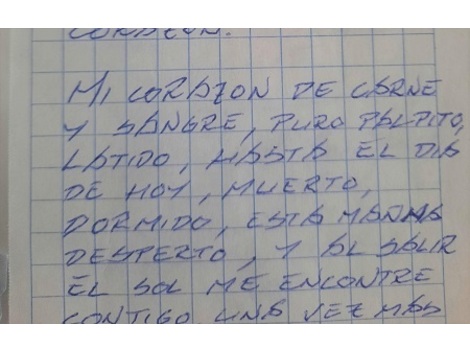 CORAZON.
MI CORAZON DE CARNE
Y SANGRE, PURO PALPITO,
LATIDO, HASTA EL DIA
DE HOY, MUERTO,
DORMIDO, ESTA MAÑANA
DESPERTO, Y AL SALIR
EL SOL ME ENCONTRE
CONTIGO UNA VEZ MAS